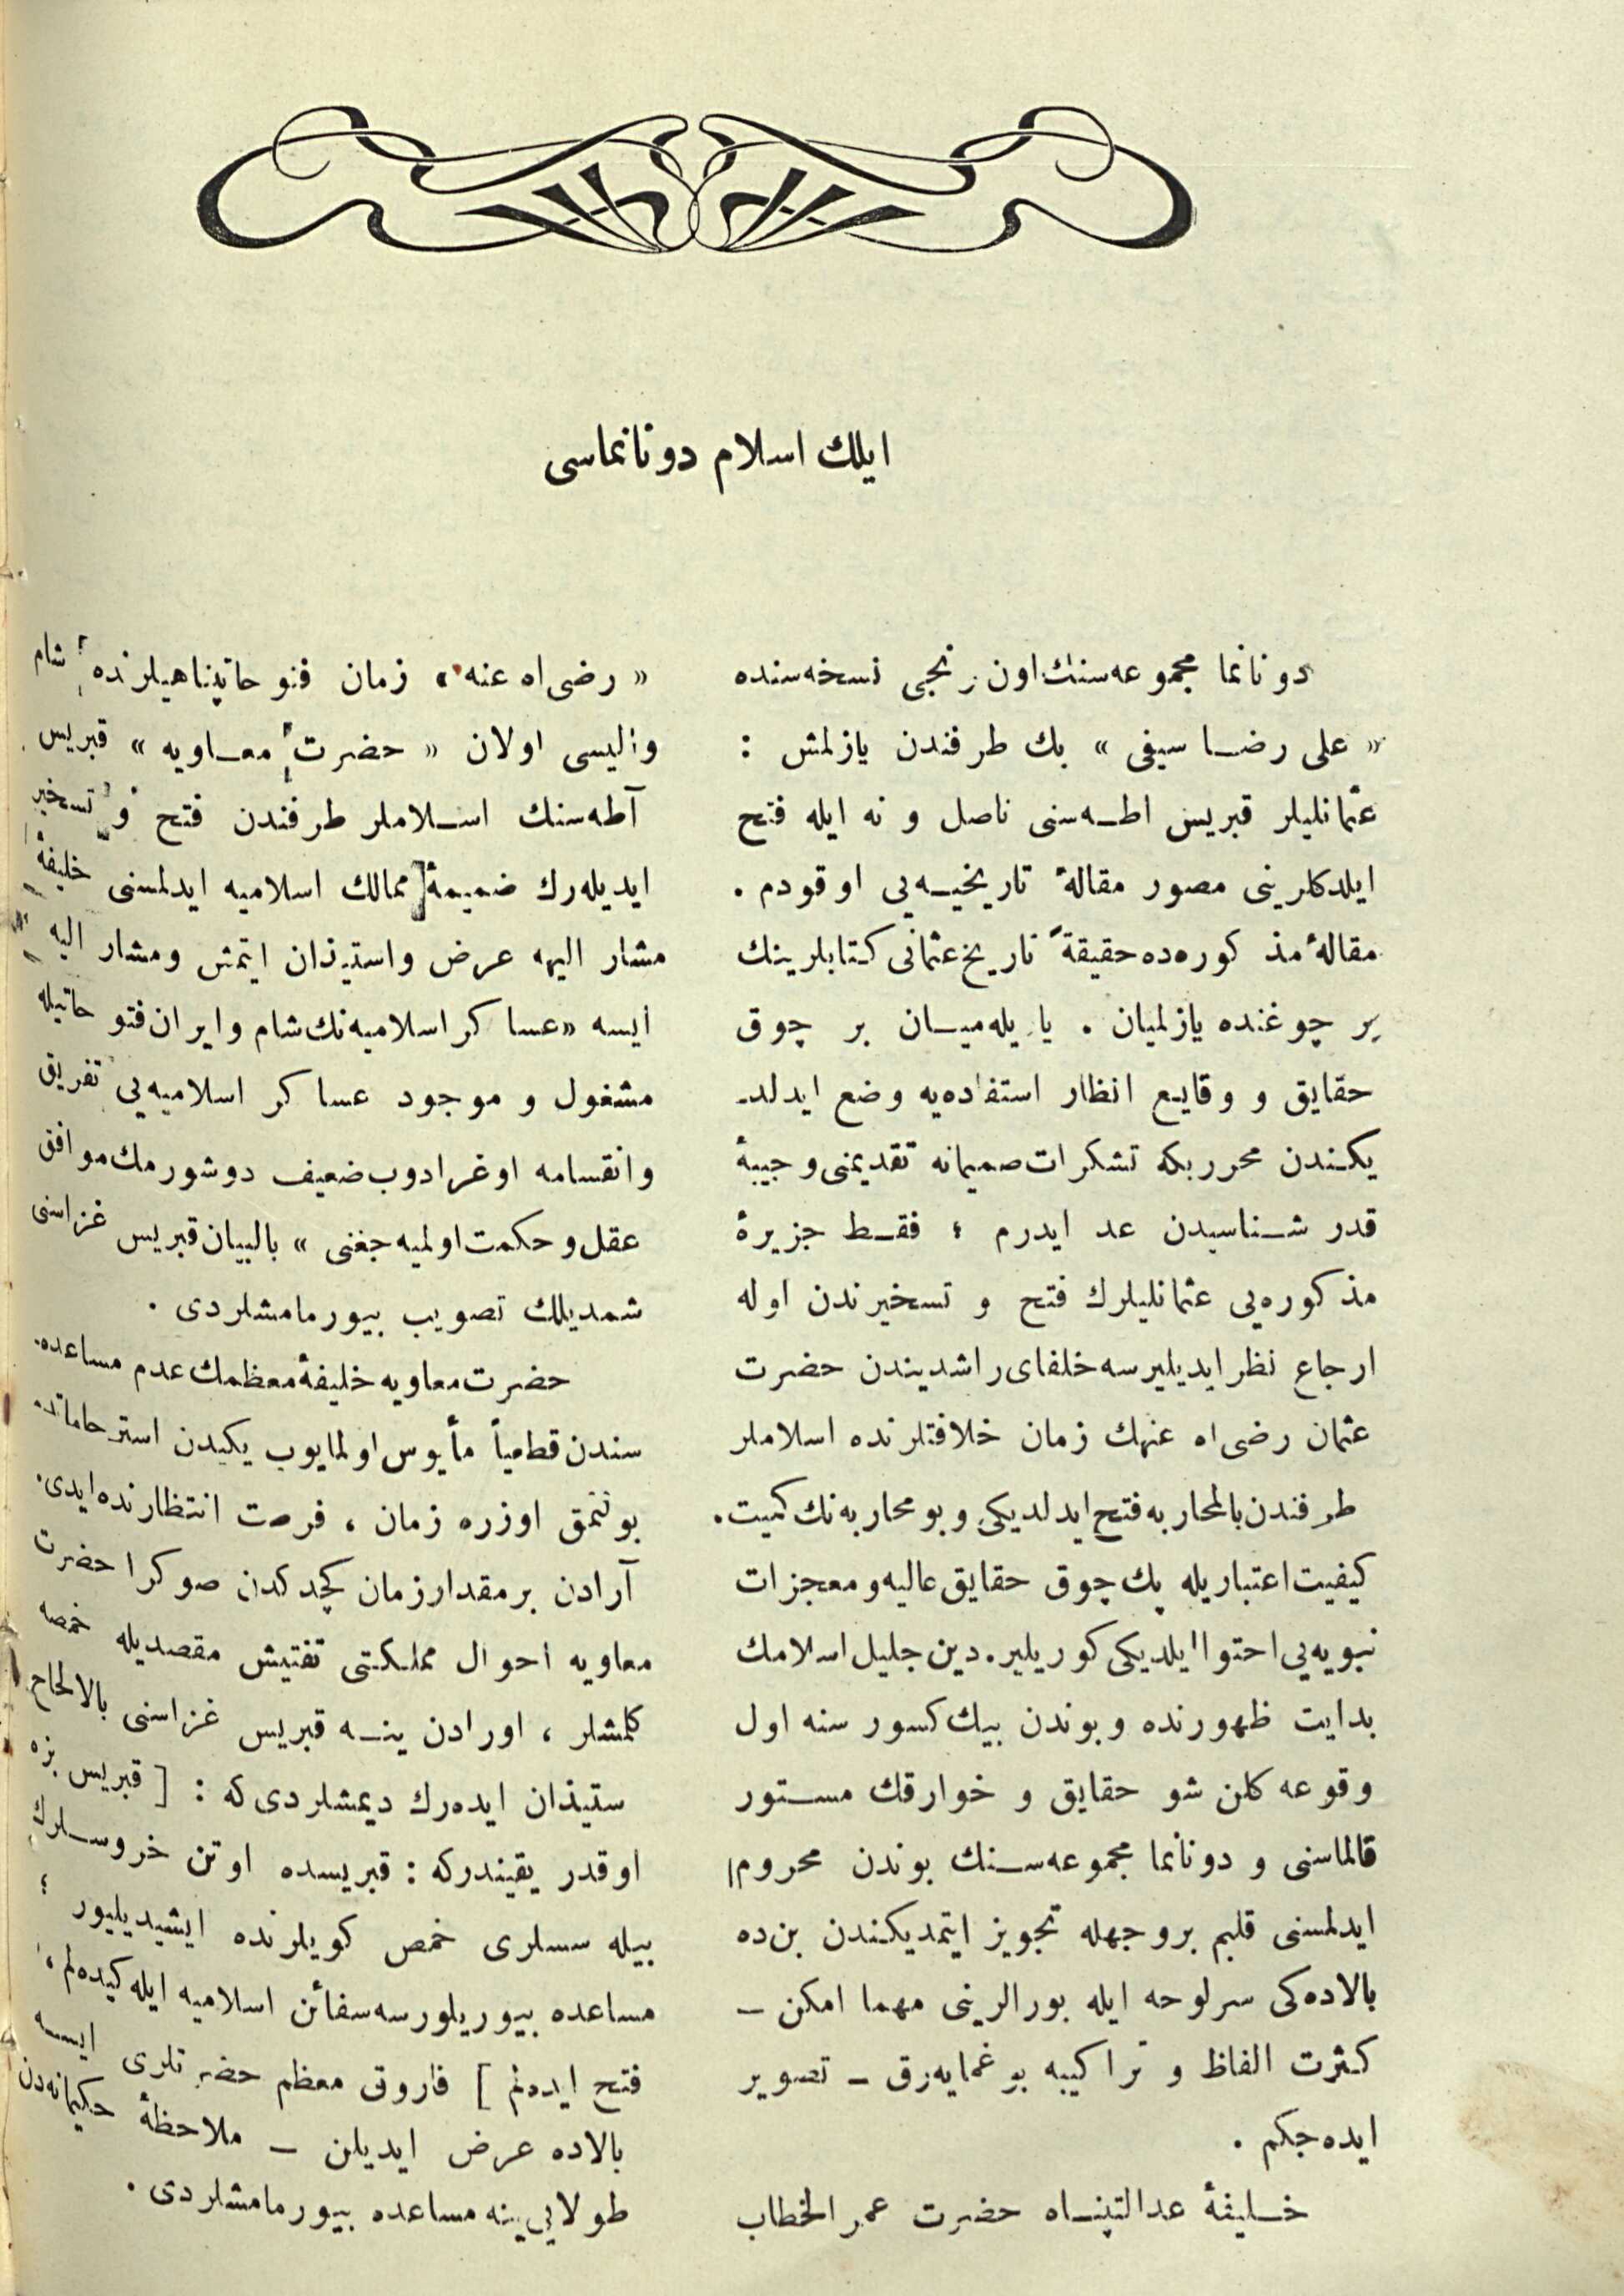 ایلك اسلام دونانماسی
دونانما مجموعه‌سنك اون برنجی نسخه‌سنده
« علی رضا سیفی » بك طرفندن یازلمش :
عثمانلیلر قبریس اطه‌سنی ناصل و نه ایله فتح
ایلدكلرینی مصور مقالهٔ تاریخیه‌یی اوقودم .
مقالهٔ مذكوره‌ده حقیقةً تاریخ عثمانی كتابلرینك
بر چوغنده یازلمیان . یا بیله‌میان بر چوق
حقایق و وقایع انظار استفاده‌یه وضع ایدلد‌ـ
یكندن محرر بكه تشكرات صمیمانه تقدیمنی وجیبهٔ
قدر شناسیدن عد ایدرم ؛ فقط جزیرهٔ
مذكوره‌یی عثمانلیلرك فتح و تسخیرندن اوله
ارجاع نظر ایدیلیرسه خلفای راشدیندن حضرت
عثمان رضی‌اه عنهك زمان خلافتلرنده اسلاملر
طرفندن بالمحاربه فتح ایدلدیكی و بو محاربه‌نك كمیت .
كیفیت اعتباریله پك چوق حقایق عالیه و معجزات
نبویه‌یی احتوا ایلدیكی كوریلیر. دین جلیل اسلامك
بدایت ظهورنده و بوندن بیك كسور سنه اول
وقوعه كلن شو حقایق و خوارقك مستور
قالماسنی و دونانما مجموعه‌سنك بوندن محروم
ایدلمسنی قلبم بر وجهله تجویز ایتمدیكندن بن‌ده
بالاده‌كی سرلوحه ایله بورالرینی مهما امكن –
كثرت الفاظ و تراكیبه بوغمایه‌رق – تصویر
ایده‌جكم .
خلیفهٔ عدالتپناه حضرت عمر الخطاب
« رضی‌اه عنه » زمان فتوحاتپناهیلرنده شام
والیسی اولان « حضرت معاویه » قبریس
آطه‌سنك اسلاملر طرفندن فتح و تسخیر
ایدیله‌رك ضمیمهٔ ممالك اسلامیه ایدلمسنی خلیفهٔ
مشار الیهه عرض و استیذان ایتمش و مشار الیه
ایسه « عساكر اسلامیه‌نك شام و ایران فتوحاتیله
مشغول و موجود عساكر اسلامیه‌یی تفریق
و انقسامه اوغرادوب ضعیف دوشورمك موافق
عقل و حكمت اولمیه‌جغنی » بالبیان قبریس غزاسنی
شمدیلك تصویب بیورمامشلردی .
حضرت معاویه خلیفهٔ معظمك عدم مساعده‌ـ
سندن قطعیاً مأیوس اولمایوب یكیدن استرحاماتده
بولنمق اوزره زمان ، فرصت انتظارنده ایدی.
آرادن بر مقدار زمان كچدكدن صوكرا حضرت
معاویه احوال مملكتی تفتیش مقصدیله خمصه
كلمشلر ، اورادن ینه قبریس غزاسنی بالالحاح
ستیذان ایده‌رك دیمشلردی كه : [ قبریس بزه
اوقدر یقیندركه : قبریسده اوتن خروسلرك
بیله سسلری خمص كویلرنده ایشیدیلیور ؛
مساعده بیوریلورسه سفائن اسلامیه ایله كیده‌لم ،
فتح ایده‌لم ] فاروق معظم حضرتلری ایسه
بالاده عرض ایدیلن – ملاحظهٔ حكیمانه‌دن
طولایی ینه مساعده بیورمامشلردی .